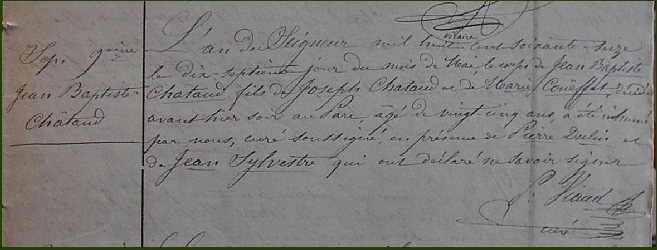 vicaire
Sep. 9ème
Jean Baptiste
Chataud
L'an du Seigneur mil huit cent soixante-seize
le dix-septième jour du mois de Mai le corps de Jean Baptiste
Chataud fils de Joseph Chataud et de Marie
avant-hier soir au Parc, âgé de vingt cinq ans, a été inhumé
par nous, curé soussigné, en présence de Pierre et
de Jean Sylvestre qui ont déclaré ne savoir signer
P. Viaud
curé